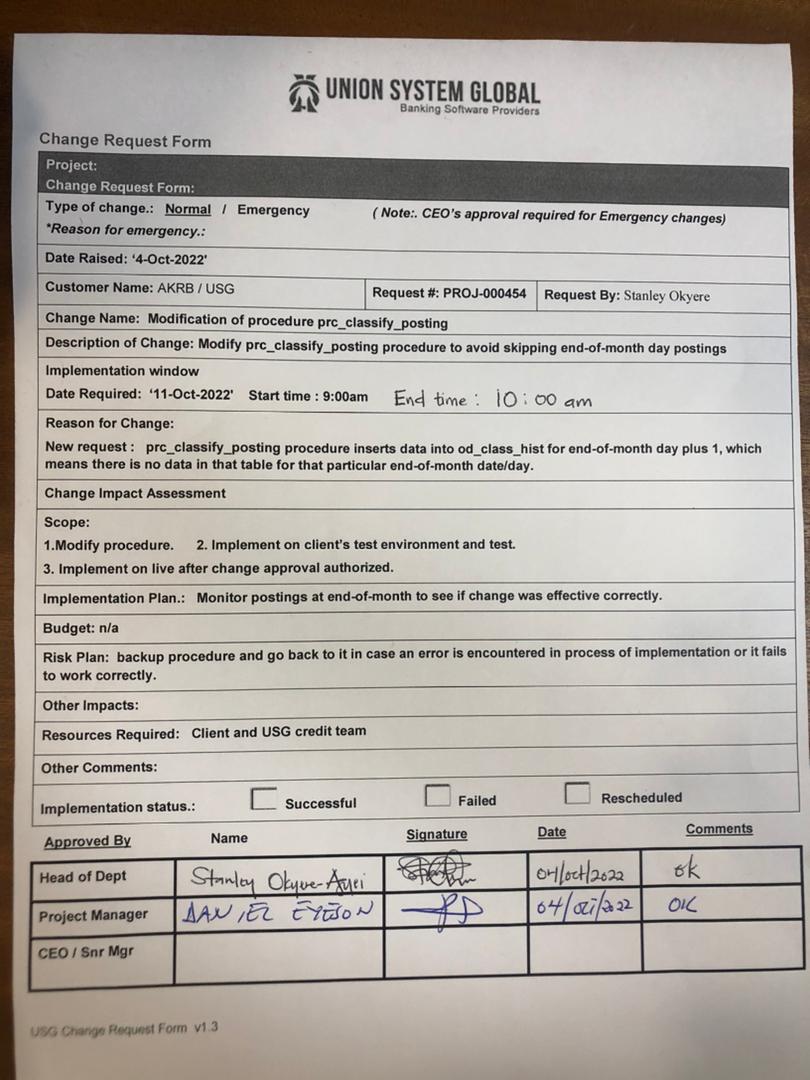 UNION SYSTEM GLOBAL
Banking Software Providers
Change Request Form
Project:
Change Request Form:
Type of change.: Normal / Emergency (Note:. CEO's approval required for Emergency changes)
*Reason for emergency.:
Date Raised: '4-Oct-2022'
Customer Name: AKRB / USG Request #: PROJ-000454 Request By: Stanley Okyere
Change Name: Modification of procedure prc_classify_posting
Description of Change: Modify prc_classify_posting procedure to avoid skipping end-of-month day postings
Implementation window
Date Required: '11-Oct-2022' Start time : 9:00am End time : 10:00 am
Reason for Change:
New request : prc_classify_posting procedure inserts data into od_class_hist for end-of-month day plus 1, which
means there is no data in that table for that particular end-of-month date/day.
Change Impact Assessment
Scope:
1.Modify procedure. 2. Implement on client's test environment and test.
3. Implement on live after change approval authorized.
Implementation Plan.: Monitor postings at end-of-month to see if change was effective correctly.
Budget: n/a
Risk Plan: backup procedure and go back to it in case an error is encountered in process of implementation or it fails
to work correctly.
Other Impacts:
Resources Required: Client and USG credit team
Other Comments:
Implementation status.: Successful Failed Rescheduled
Approved By Name Signature Date Comments
Head of Dept Stanley 04/oct/2022 ok
Project Manager DANIEL 04/oct/2022 OK
CEO / Snr Mgr
USG Change Request Form v1.3